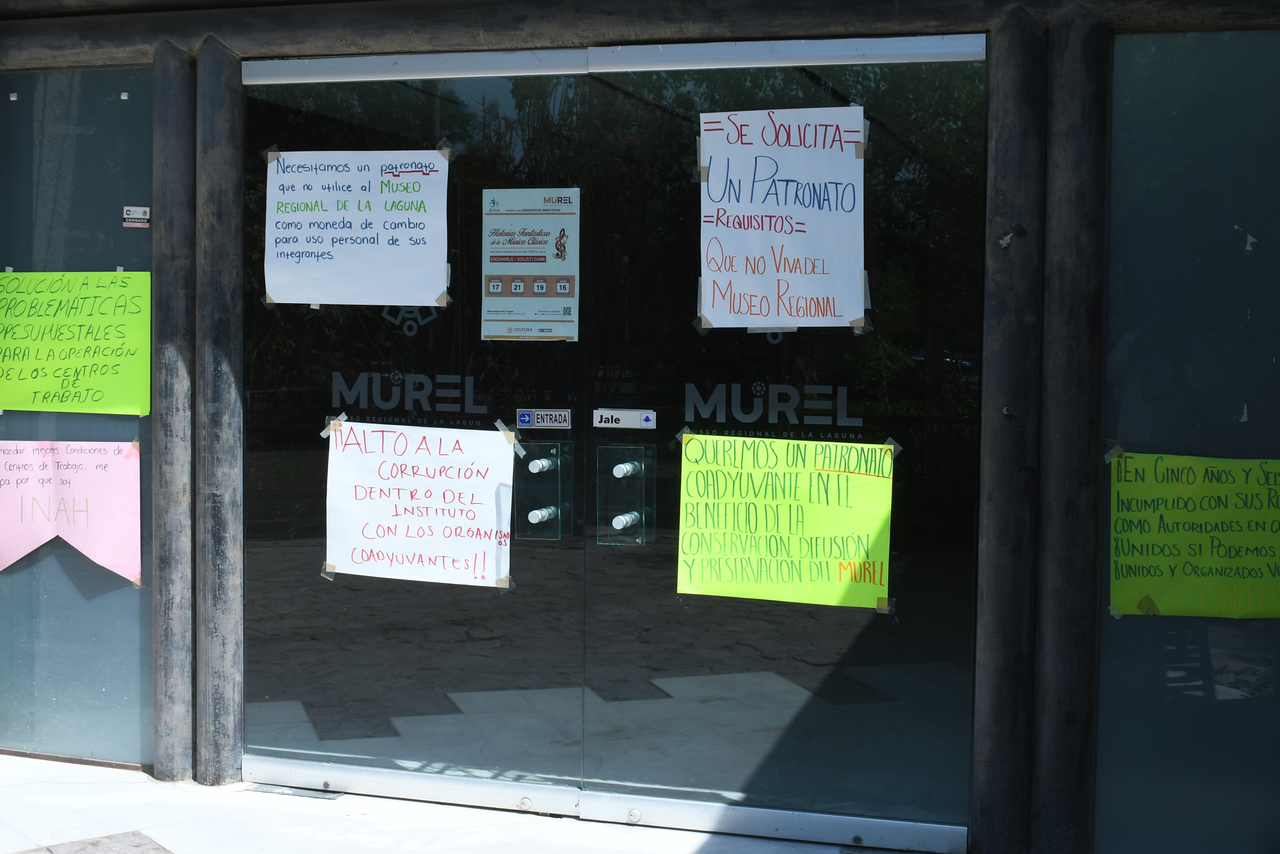 Necesitamos un patronato
que no utilice al MUSEO
REGIONAL DE LA LAGUNA
como moneda de cambio
para uso personal de sus
integrantes
MUREL
Historias Fantásticas
de la Música Clásica
ENSAMBLE I SOLISTI DAME
17 21 19 16
=SE SOLICITA=
UN PATRONATO
=REQUISITOS=
QUE NO VIVA DEL
MUSEO REGIONAL
CENSADO
SOLUCIÓN A LAS
PROBLEMATICAS
PRESUPUESTALES
PARA LA OPERACIÓN
DE LOS CENTROS
DE
TRABAJO
mandar mejores Condiciones de
Centros de Trabajo. me
pa por que soy
INAH
MUREL
MUSEO REGIONAL DE LA LAGUN
ENTRADA
Jale
MUREL
MUSEO REGIONAL DE LA LAGUNA
¡¡ALTO A LA
CORRUPCIÓN
DENTRO DEL
INSTITUTO
CON LOS ORGANISMOS
COADYUVANTES!!
QUEREMOS UN PATRONATO
COADYUVANTE EN EL
BENEFICIO DE LA
CONSERVACION, DIFUSIÓN
Y PRESERVACION DEL MUREL
EN CINCO AÑOS Y SEI
INCUMPLIDO CON SUS R
COMO AUTORIDADES EN
¡UNIDOS SI PODEMOS
¡UNIDOS Y ORGANIZADOS V